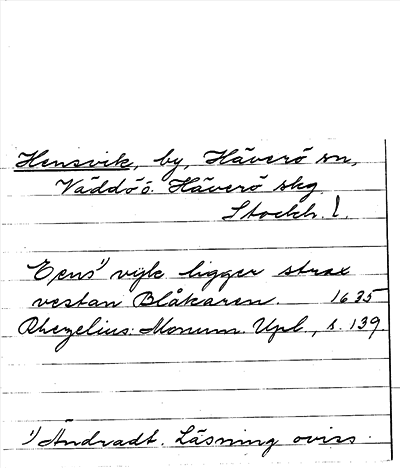 Hensvik, by, Häverö sn,
Väddö o. Häverö skg
Stockh. l.
Eens¹⁾ vijk ligger strax
vestan Blåkaren. 1635
Rhezelius: Monum. Upl., s. 139.
¹⁾ Ändradt. Läsning oviss.